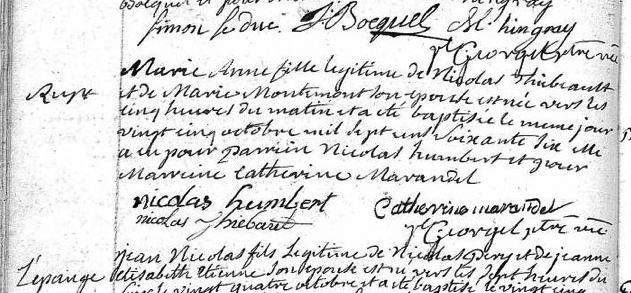 simon le duc. J Bocquel M. hingray
Georgel ptre vic
Marie Anne fille legitime de Nicolas thiebeault
Rupt et de Marie Montémont son epouse est née vers les
cinq heures du matin et a eté baptisée le meme jour
vingt cinq octobre mil sept cens soixante six elle
a eu pour parrein Nicolas humbert et pour
Marreine Catherine Marandel
nicolas humbert Catherine marandel
nicolas Thiebaut
Georgel ptre vic
jean Nicolas fils Legitime de Nicolas Pery et de jeanne
L'épange elisabeth Etienne son epouse est né vers les sept heures du
vingt quatre octobre et a eté baptisé le vingt cinq